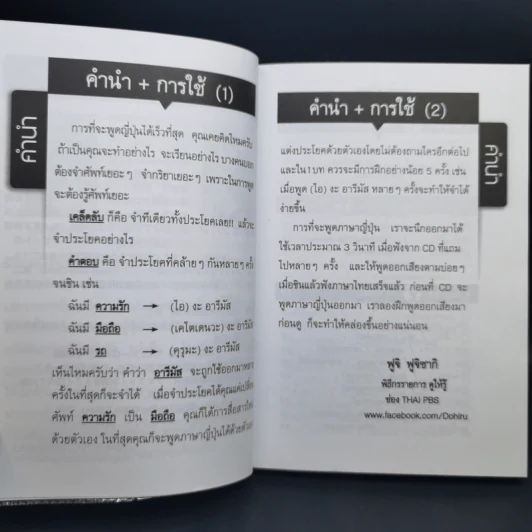 คำนำ + การใช้ (1)
คำนำ
การที่จะพูดญี่ปุ่นได้เร็วที่สุด คุณเคยคิดไหมครับ
ถ้าเป็นคุณจะทำอย่างไร จะเรียนอย่างไร บางคนบอก
ต้องจำศัพท์เยอะๆ จำกริยาเยอะๆ เพราะในการพูด
จะต้องรู้ศัพท์เยอะ
เคล็ดลับ ก็คือ จำทีเดียวทั้งประโยคเลย!! แล้วจะ
จำประโยคอย่างไร
คำตอบ คือ จำประโยคที่คล้ายๆ กันหลายๆ ครั้ง
จนชิน เช่น
ฉันมี ความรัก → (ไอ) งะ อาริมัส
ฉันมี มือถือ → (เคไตเดนวะ) งะ อาริมัส
ฉันมี รถ → (คุรุมะ) งะ อาริมัส
เห็นไหมครับว่า คำว่า อาริมัส จะถูกใช้ออกมาหลาย
ครั้งในที่สุดก็จะจำได้ เมื่อจำประโยคได้คุณแค่เปลี่ยน
ศัพท์ ความรัก เป็น มือถือ คุณก็ได้การสื่อสารใหม่
ด้วยตัวเอง ในที่สุดคุณก็จะพูดภาษาญี่ปุ่นได้ด้วยตัวเอง
คำนำ + การใช้ (2)
คำนำ
แต่งประโยคด้วยตัวเองโดยไม่ต้องถามใครอีกต่อไป
และใน 1 บท ควรจะมีการฝึกอย่างน้อย 5 ครั้ง เช่น
เมื่อพูด (ไอ) งะ อาริมัส หลายๆ ครั้งจะทำให้จำได้
ง่ายขึ้น
การที่จะพูดภาษาญี่ปุ่น เราจะนึกออกมาได้
ใช้เวลาประมาณ 3 วินาที เมื่อฟังจาก CD ที่แถม
ไปหลายๆ ครั้ง และให้พูดออกเสียงตามบ่อยๆ
เมื่อชินแล้วฟังภาษาไทยเสร็จแล้ว ก่อนที่ CD จะ
พูดภาษาญี่ปุ่นออกมา เราลองฝึกพูดออกเสียงมา
ก่อนดู ก็จะทำให้คล่องขึ้นอย่างแน่นอน
ฟูจิ ฟูจิซากิ
พิธีกรรายการ ดูให้รู้
ช่อง THAI PBS
www.facebook.com/Dohiru